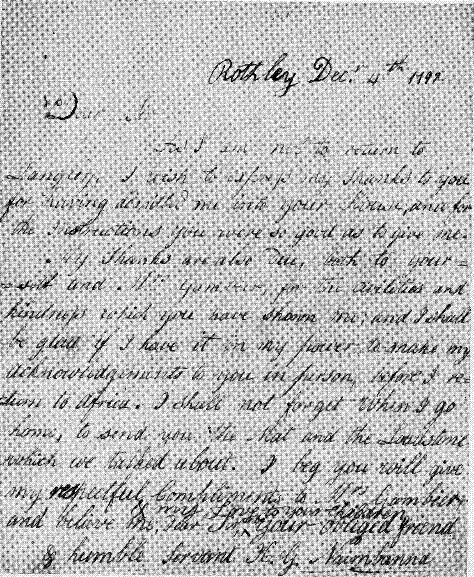 Rothley Decr. 4th 1792
Dear Sir
As I am not to return to
Langley, I wish to express my Thanks to you
for having admitted me into your House, and for
the Instructions you were so good as to give me.
My Thanks are also Due, both to your=
=self and Mrs Gambier, for the civilities and
kindness which you have shown me; and I shall
be glad if I have it in my power to make my
acknowledgements to you in person, before I re
turn to Africa. I shall not forget when I go
home, to send you the Mat and the Loadstone
which we talked about. I beg you will give
my respectful Compliments to Mrs Gambier
& my Love to your Children
and believe me, Dear Sir, your obliged friend
& humble Servant H. G. Naimbanna